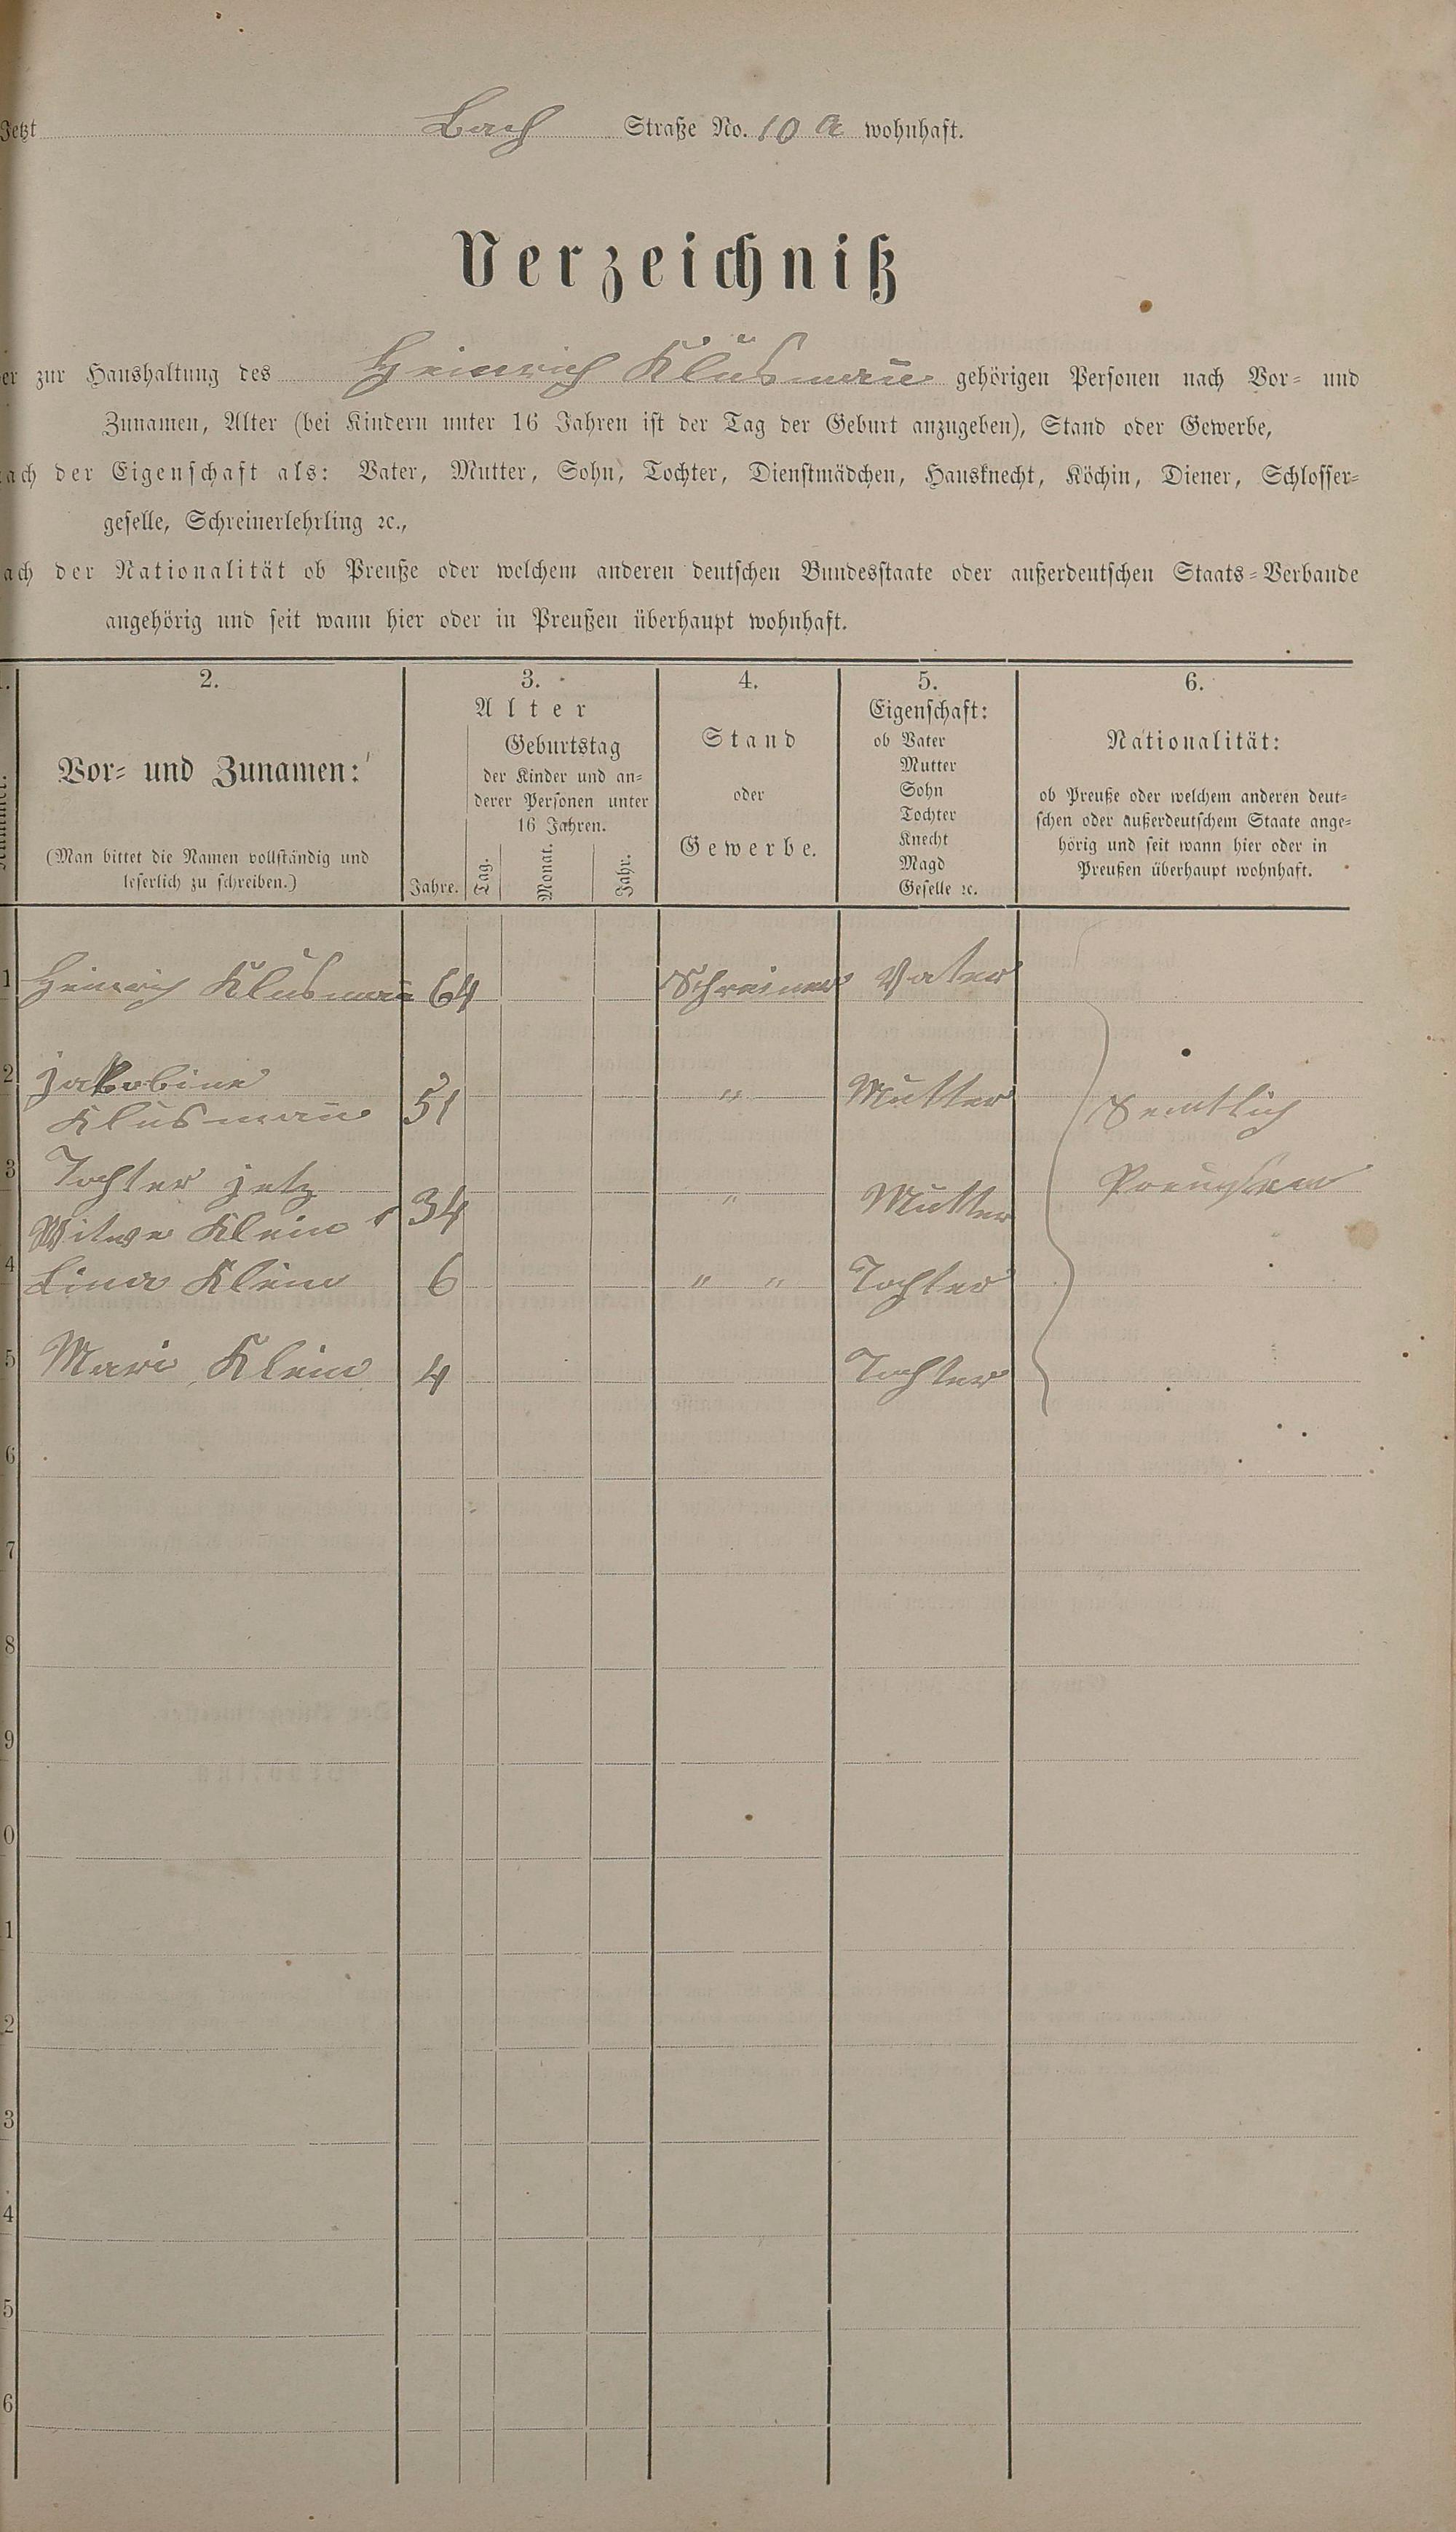 Jetzt Bach Straße No. 10 a wohnhaft.
Verzeichniß
er zur Haushaltung des Heinrich Klüsmañ gehörigen Personen nach Vor- und
Zunamen, Alter (bei Kindern unter 16 Jahren ist der Tag der Geburt anzugeben), Stand oder Gewerbe,
ach der Eigenschaft als: Vater, Mutter, Sohn, Tochter, Dienstmädchen, Hausknecht, Köchin, Diener, Schlosser-
geselle, Schreinerlehrling ꝛc.,
ach der Nationalität ob Preuße oder welchem anderen deutschen Bundesstaate oder außerdeutschen Staats-Verbande
angehörig und seit wann hier oder in Preußen überhaupt wohnhaft.
2.
Vor- und Zunamen:
(Man bittet die Namen vollständig und
leserlich zu schreiben.)
3.
Alter
Geburtstag
der Kinder und an-
derer Personen unter
16 Jahren.
Jahre. Tag. Monat. Jahr.
4.
Stand
oder
Gewerbe.
5.
Eigenschaft:
ob Vater
Mutter
Sohn
Tochter
Knecht
Magd
Geselle ꝛc.
6.
Nationalität:
ob Preuße oder welchem anderen deut-
schen oder außerdeutschem Staate ange-
hörig und seit wann hier oder in
Preußen überhaupt wohnhaft.
1 Heinrich Klüsmañ 64 Schreiner Vater
2 Jakobine
Klüsmañ 51 " Mutter
3 Tochter jetz
Witwe Klein 34 " Mutter
4 Lina Klein 6 " " Tochter
5 Mari Klein 4 Tochter
Semtlich
Preußen
6
7
8
9
0
1
2
3
4
5
6